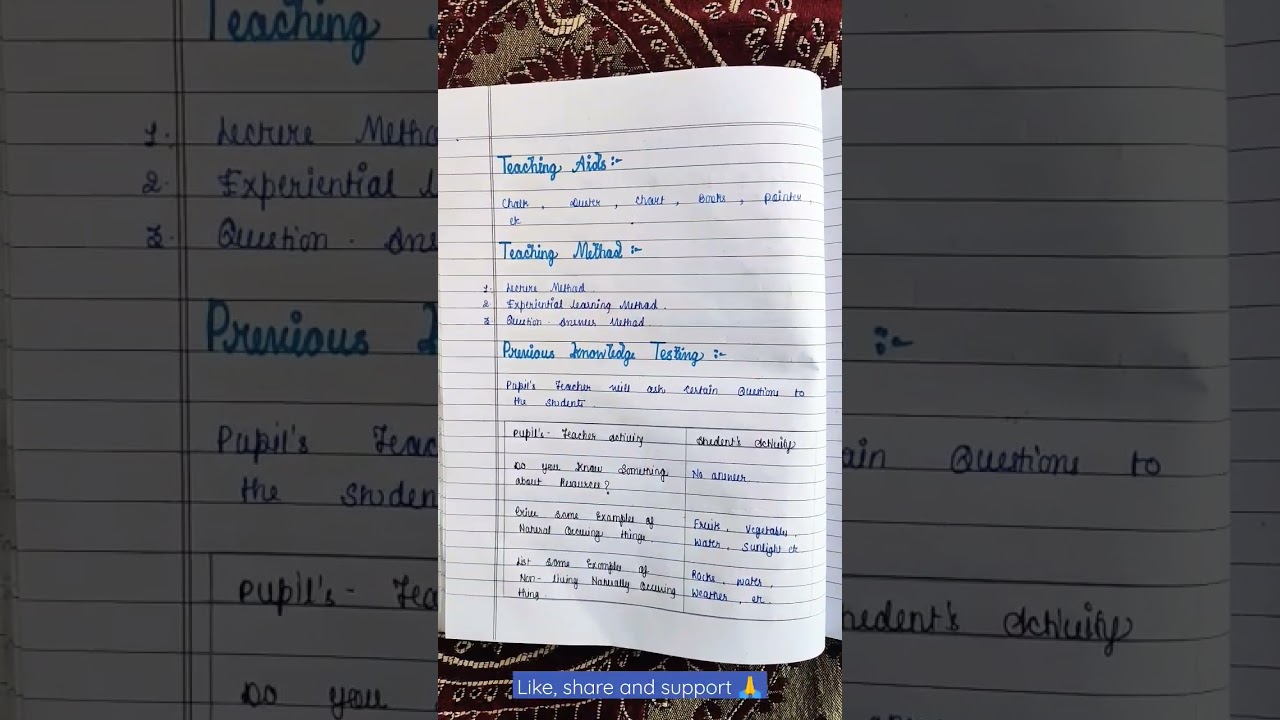 Teaching Aids :-
Chalk , Duster , Chart , Books , pointer ,
etc
Teaching Method :-
1. Lecture Method .
2. Experiential learning Method .
3. Question - Answer Method .
Previous Knowledge Testing :-
Pupil's Teacher will ask certain Questions to
the students .
Pupil's - Teacher activity
Student's Activity
Do you know Something
about Resources ?
No answer .
Give some Examples of
Natural Occuring things .
Fruits , Vegetables ,
Water , Sunlight etc
List some Examples of
Non - living Naturally Occuring
thing .
Rocks , water ,
Weather , etc .
Like, share and support 🙏